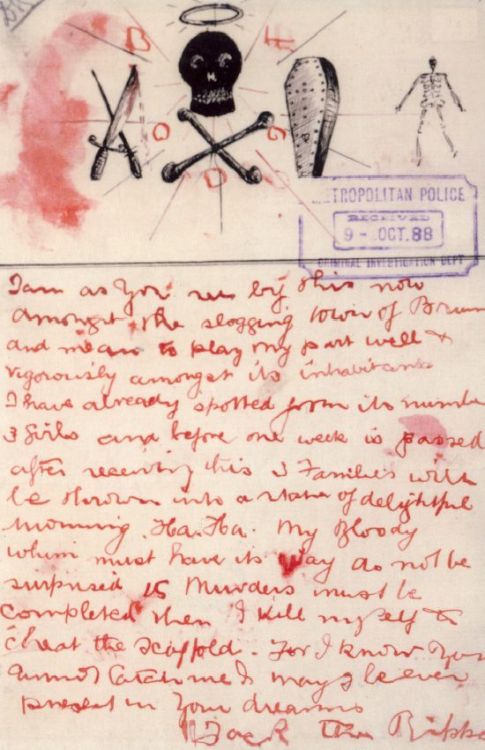 METROPOLITAN POLICE
RECEIVED
9 - OCT. 88
CRIMINAL INVESTIGATION DEPT
I am as you see by this now
amongst the slogging town of Brum
and mean to play my part well &
vigorously amongst its inhabitants
I have already spotted from its numbe
3 girls and before one week is passed
after receiving this 3 Families will
be thrown into a state of delightful
mourning. Ha. Ha. My Bloody
whim must have its way do not be
surprised 15 Murders must be
completed then I kill myself to
cheat the scaffold. For I know you
cannot catch me & I may be ever
present in your dreams
Jack the Rippe